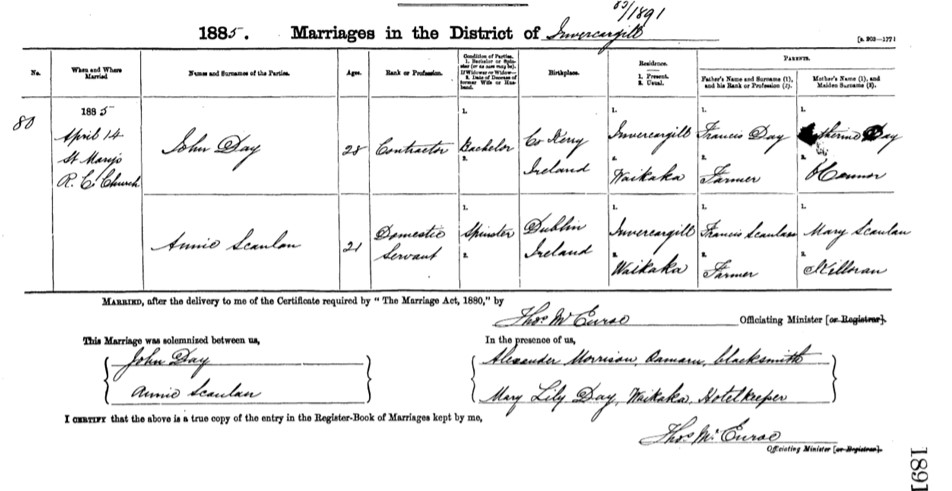 83/1891
1885. Marriages in the District of Invercargill
[R. 303—177]
No.
When and Where Married
Names and Surnames of the Parties.
Ages.
Rank or Profession.
Condition of Parties.
1. Bachelor or Spinster (or as case may be).
If Widower or Widow—
2. Date of Decease of former Wife or Husband.
Birthplace.
Residence.
1. Present.
2. Usual.
PARENTS.
Father's Name and Surname (1), and his Rank or Profession (2).
Mother's Name (1), and Maiden Surname (2).
80
1885
April 14
St Mary's
R. C. Church
John Day
28
Contractor
1.
Bachelor
2.
Co Kerry
Ireland
1.
Invercargill
2.
Waikaka
1.
Francis Day
2.
Farmer
1.
Day
2.
O'Connor
Annie Scanlan
21
Domestic
Servant
1.
Spinster
2.
Dublin
Ireland
1.
Invercargill
2.
Waikaka
1.
Francis Scanlan
2.
Farmer
1.
Mary Scanlan
2.
Killoran
MARRIED, after the delivery to me of the Certificate required by "The Marriage Act, 1880," by
Thos McEnroe
Officiating Minister [or Registrar].
This Marriage was solemnized between us,
John Day
Annie Scanlan
In the presence of us,
Alexander Morrison, Oamaru, blacksmith
Mary Lily Day, Waikaka, Hotelkeeper
I CERTIFY that the above is a true copy of the entry in the Register-Book of Marriages kept by me,
Thos McEnroe
Officiating Minister [or Registrar].
1891